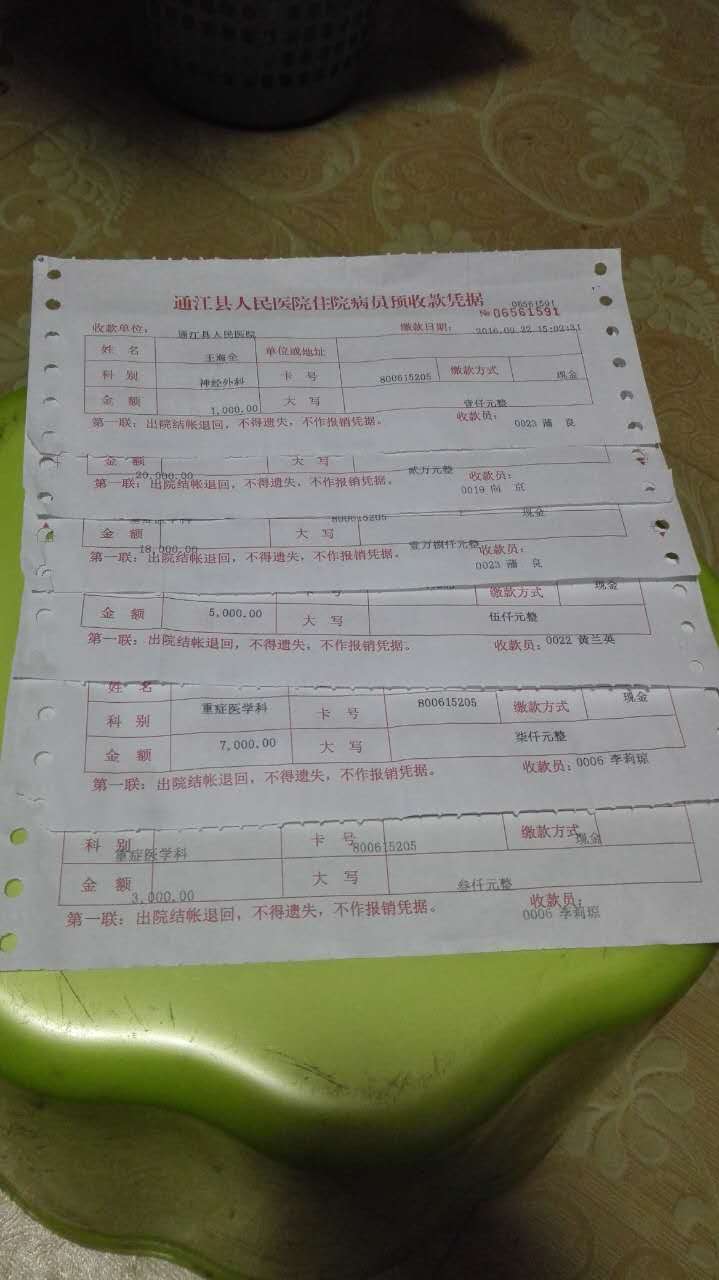 通江县人民医院住院病员预收款凭据
06561591
№06561591
收款单位： 通江县人民医院 缴款日期： 2016.09.22 15:02:31
姓 名 王海全 单位或地址
科 别 神经外科 卡 号 800615205 缴款方式 现金
金 额 1,000.00 大 写 壹仟元整
第一联：出院结帐退回，不得遗失，不作报销凭据。 收款员： 0023 蒲 良
金 额 20,000.00 大 写 贰万元整
第一联：出院结帐退回，不得遗失，不作报销凭据。 收款员： 0019
重症医学科 800615205 现金
金 额 18,000.00 大 写 壹万捌仟元整
第一联：出院结帐退回，不得遗失，不作报销凭据。 收款员： 0023 蒲 良
缴款方式 现金
金 额 5,000.00 大 写 伍仟元整
第一联：出院结帐退回，不得遗失，不作报销凭据。 收款员： 0022 黄兰英
姓 名
科 别 重症医学科 卡 号 800615205 缴款方式 现金
金 额 7,000.00 大 写 柒仟元整
第一联：出院结帐退回，不得遗失，不作报销凭据。 收款员：0006 李莉琼
科 别 重症医学科 卡 号 800615205 缴款方式 现金
金 额 3,000.00 大 写 叁仟元整
第一联：出院结帐退回，不得遗失，不作报销凭据。 收款员： 0006 李莉琼